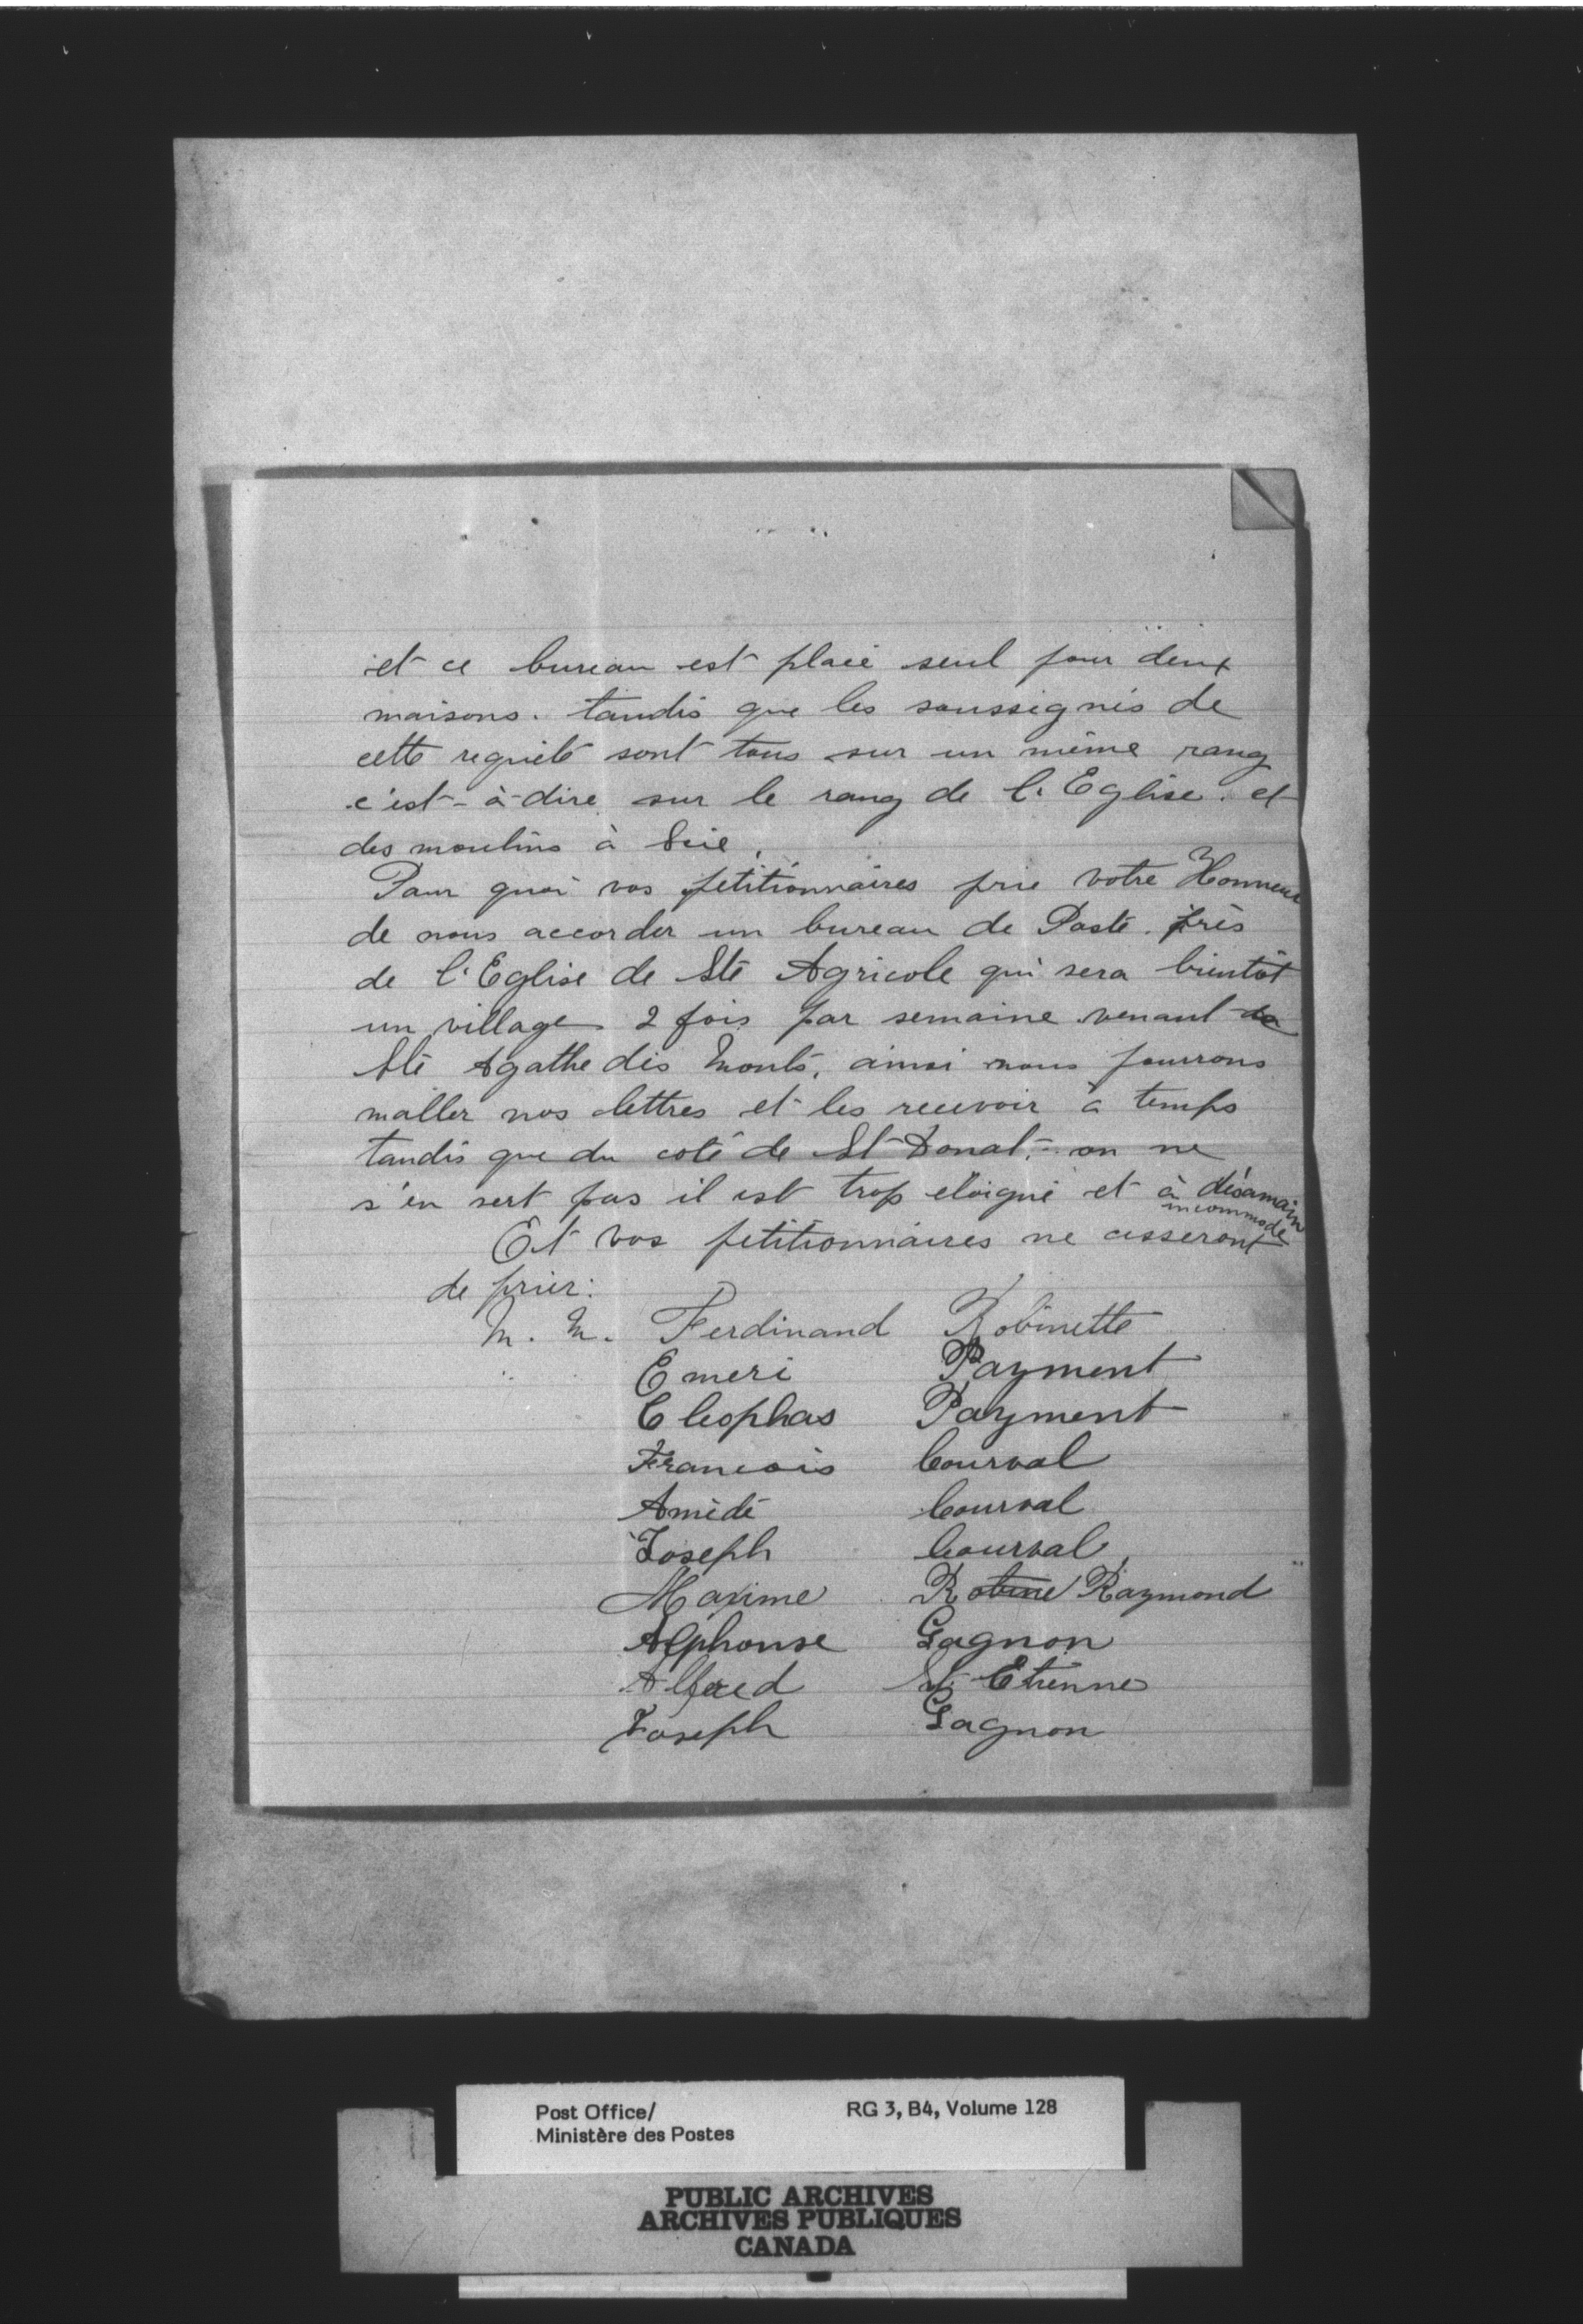 et ce bureau est placé seul pour deux
maisons. tandis que les soussignés de
cette requête sont tous sur un même rang
c'est-à-dire sur le rang de l'Eglise. et
des moulins à Scie.
Pour quoi vos pétitionnaires prie votre Honneur
de nous accorder un bureau de Poste. près
de l'Eglise de Ste Agricole qui sera bientôt
un village 2 fois par semaine venant de
Ste Agathe des Monts. ainsi nous pourrons
maller nos lettres et les recevoir à temps
tandis que du coté de St-Donat.- on ne
s'en sert pas il est trop eloigné et à désamain
incommode
Et vos petitionnaires ne cesseront
de prier:
M. M. Ferdinand Robinette
" Emeri Payment
Cleophas Payment
Francois Courval
Amédé Courval
Joseph Courval
Maxime Robine Raymond
Alphonse Gagnon
Alfred St-Etienne
Joseph Gagnon
Post Office/ RG 3, B4, Volume 128
Ministère des Postes
PUBLIC ARCHIVES
ARCHIVES PUBLIQUES
CANADA